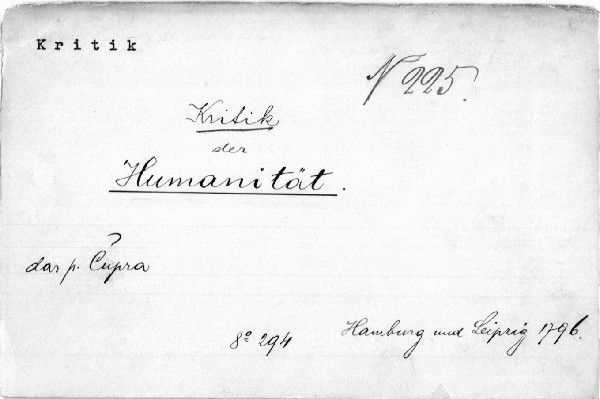 Kritik
N 225.
Kritik
der
Humanität.
dar p. Čupra
8º 294
Hamburg und Leipzig 1796.